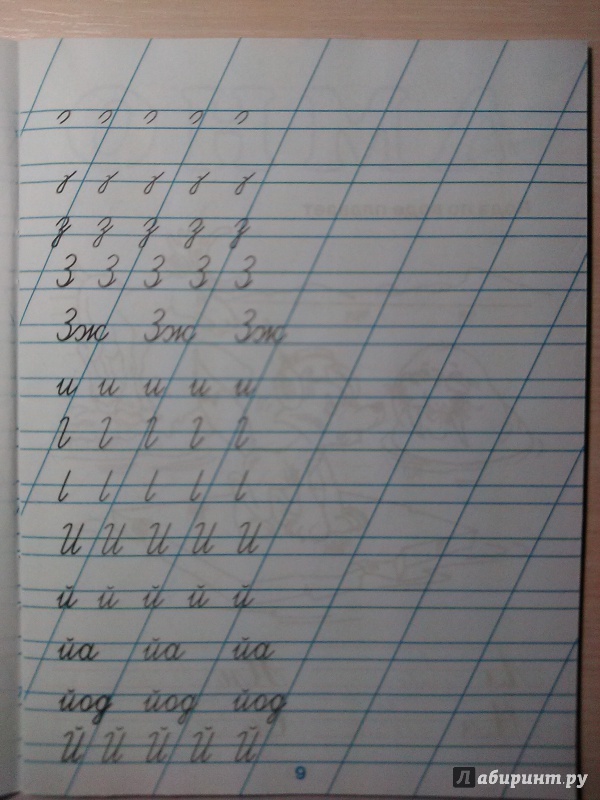 з з з з з
З З З З З
Зж Зж Зж
и и и и и
И И И И И
й й й й й
йа йа йа
йод йод йод
Й Й Й Й Й
9
Лабиринт.ру